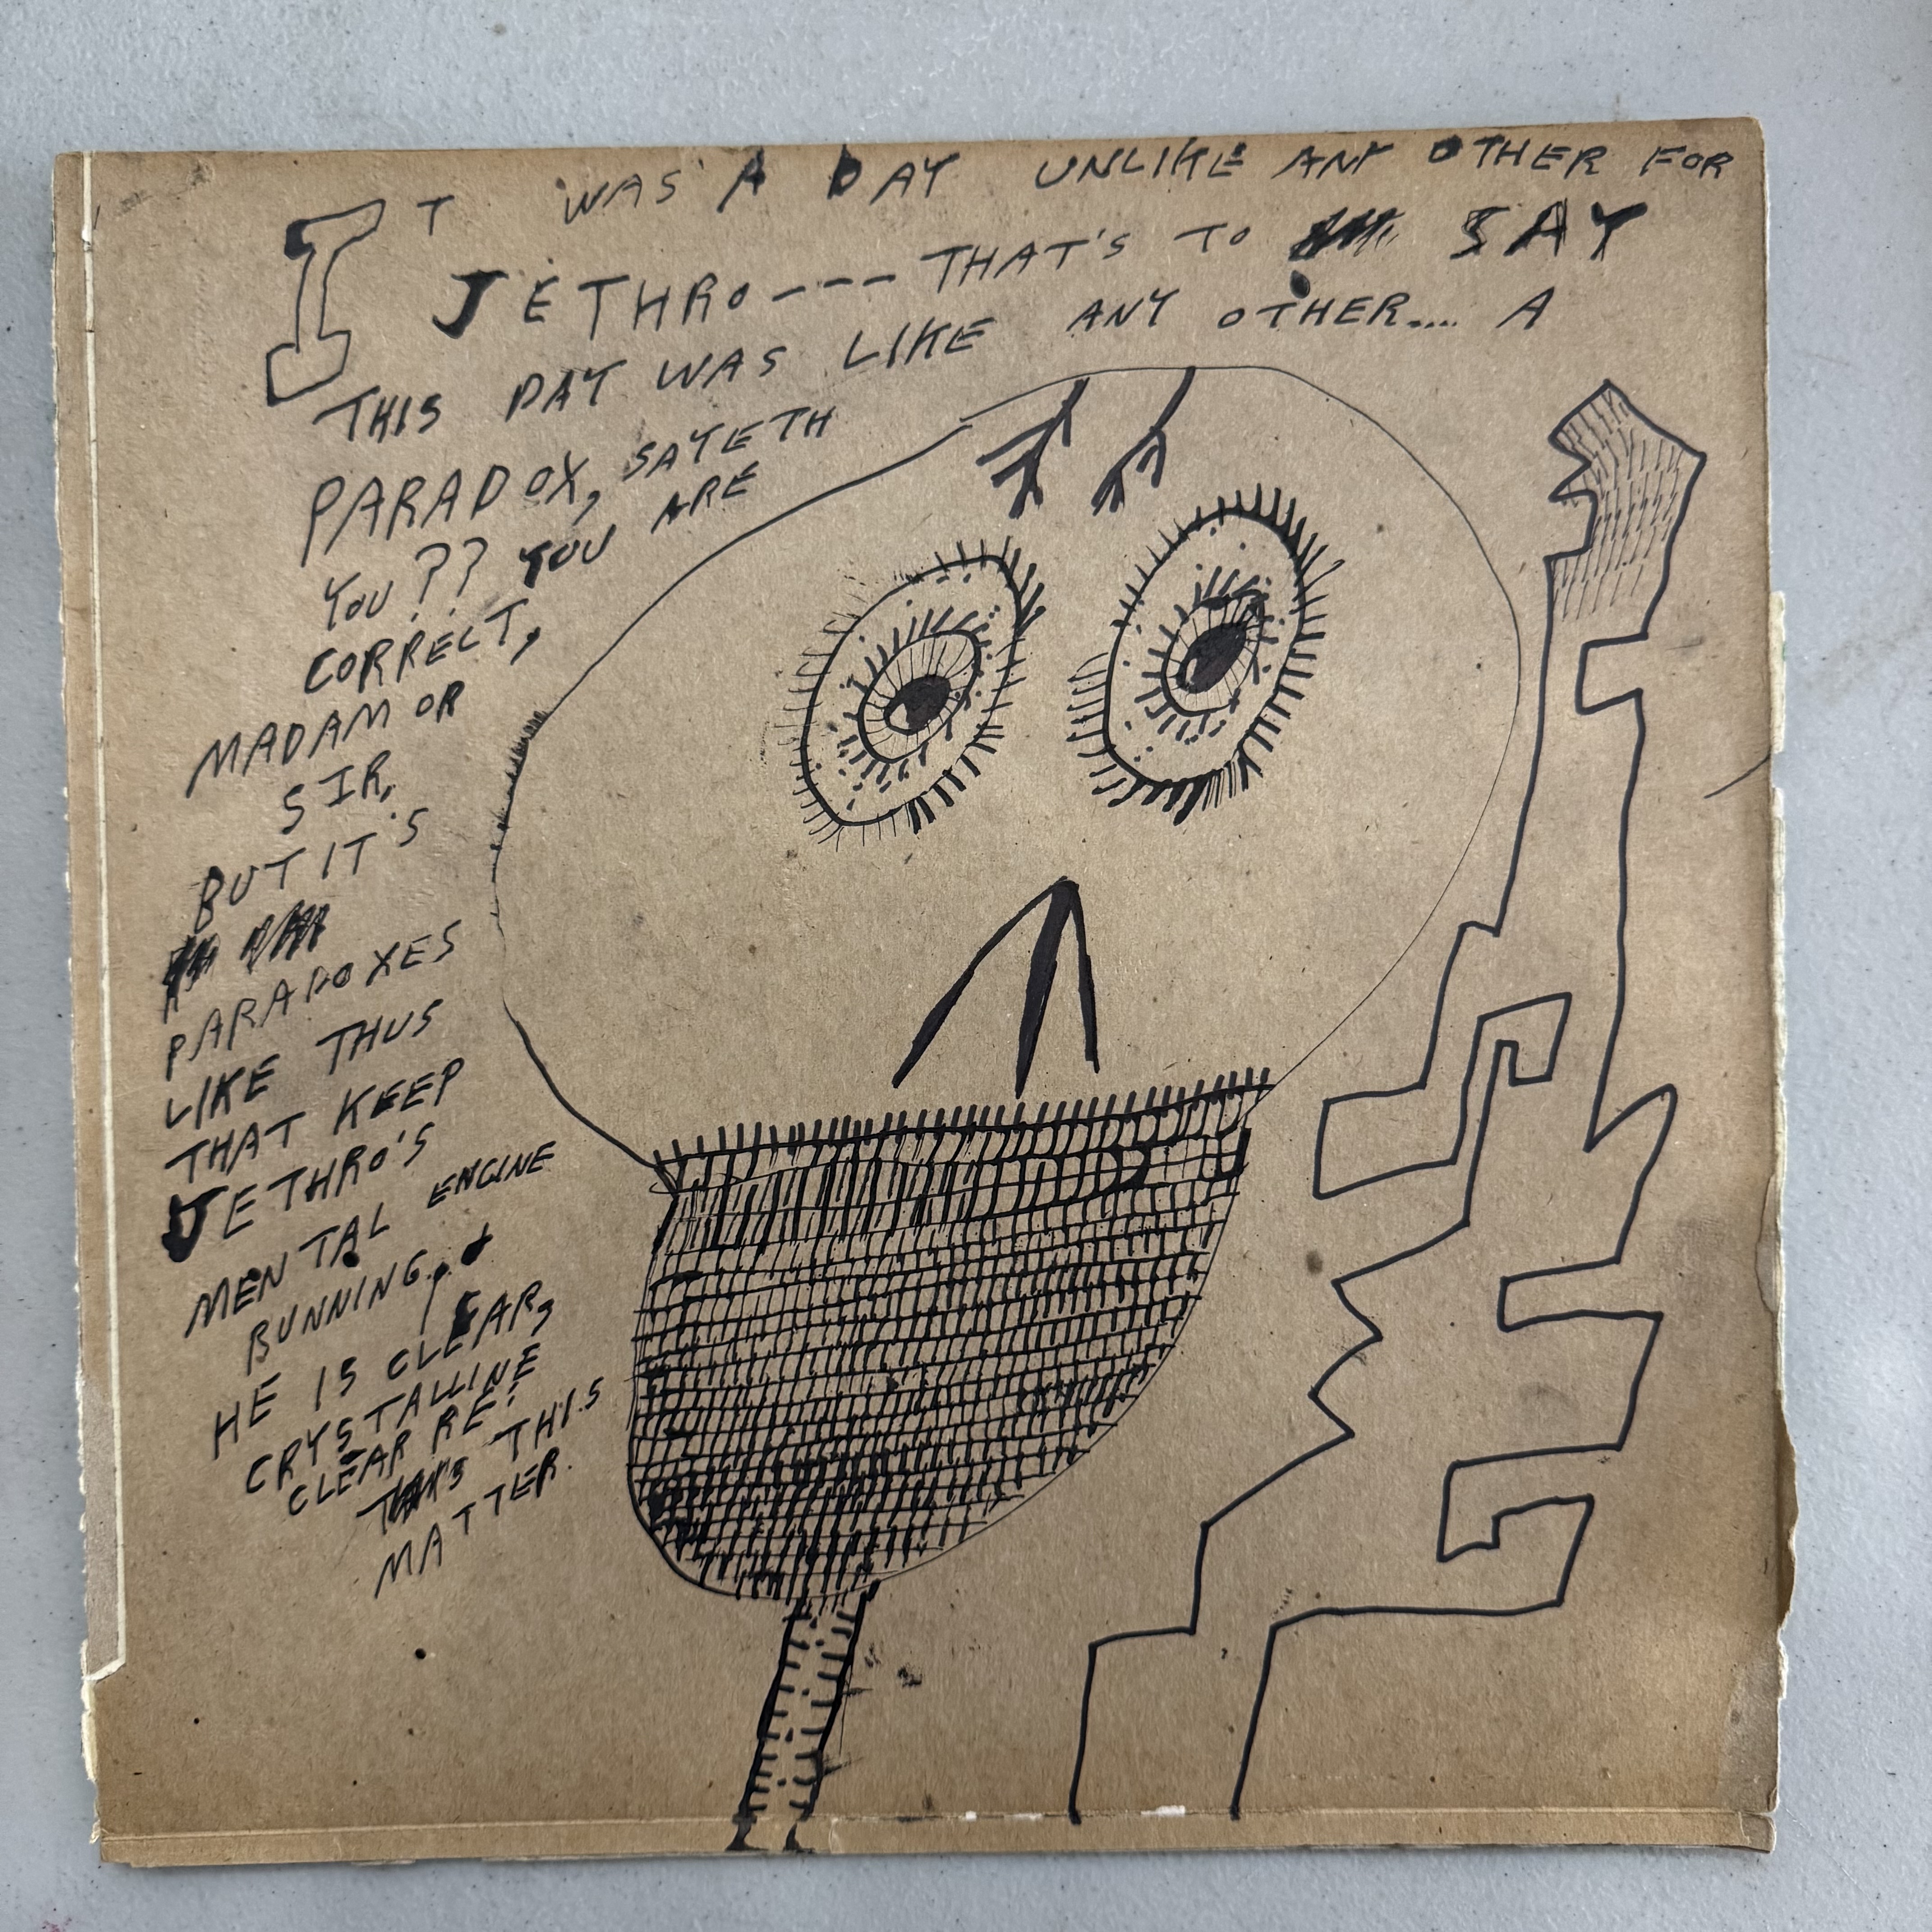 IT WAS A DAY UNLIKE ANY OTHER FOR
JETHRO--- THAT'S TO SAY
THIS DAY WAS LIKE ANY OTHER.... A
PARADOX, SAYETH
YOU?? YOU ARE
CORRECT,
MADAM OR
SIR,
BUT IT'S
PARADOXES
LIKE THUS
THAT KEEP
JETHRO'S
MENTAL ENGINE
RUNNING..
HE IS CLEAR,
CRYSTALLINE
CLEAR RE:
THIS
MATTER.